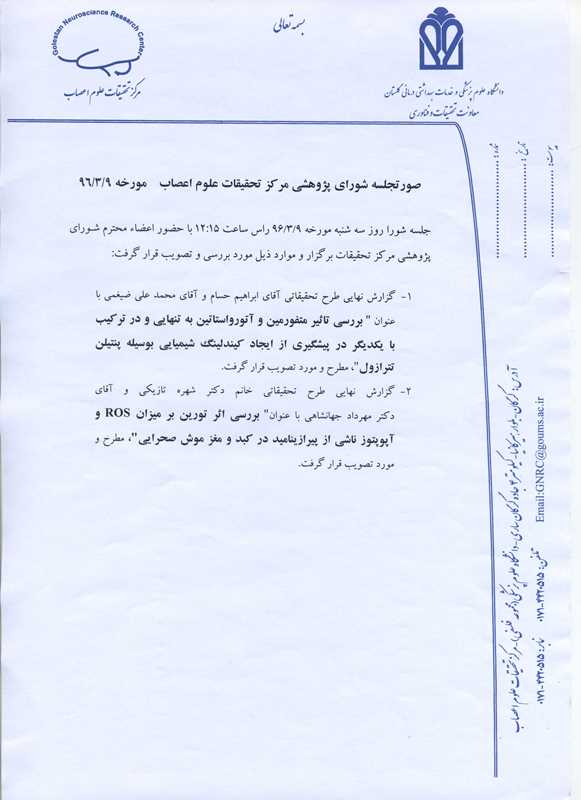 بسمه تعالی
Golestan Neuroscience Research Center
مرکز تحقیقات علوم اعصاب
دانشگاه علوم پزشکی و خدمات بهداشتی درمانی گلستان
معاونت تحقیقات و فناوری
شماره:
تاریخ:
پیوست:
صورتجلسه شورای پژوهشی مرکز تحقیقات علوم اعصاب مورخه ۹۶/۳/۹
جلسه شورا روز سه شنبه مورخه ۹۶/۳/۹ راس ساعت ۱۲:۱۵ با حضور اعضاء محترم شورای
پژوهشی مرکز تحقیقات برگزار و موارد ذیل مورد بررسی و تصویب قرار گرفت:
۱- گزارش نهایی طرح تحقیقاتی آقای ابراهیم حسام و آقای محمد علی ضیغمی با
عنوان " بررسی تاثیر متفورمین و آتورواستاتین به تنهایی و در ترکیب
با یکدیگر در پیشگیری از ایجاد کیندلینگ شیمیایی بوسیله پنتیلن
تترازول"، مطرح و مورد تصویب قرار گرفت.
۲- گزارش نهایی طرح تحقیقاتی خانم دکتر شهره تازیکی و آقای
دکتر مهرداد جهانشاهی با عنوان" بررسی اثر تورین بر میزان ROS و
آپوپتوز ناشی از پیرازینامید در کبد و مغز موش صحرایی"، مطرح و
مورد تصویب قرار گرفت.
آدرس: گرگان- بلوار هیرکانیا- کیلومتر ۴ جاده گرگان ساری- دانشگاه علوم پزشکی (مجموعه فلسفی)- مرکز تحقیقات علوم اعصاب
Email:GNRC@goums.ac.ir
تلفن: ۰۱۷۱-۴۴۲۰۵۱۵ نمابر: ۰۱۷۱-۴۴۲۰۵۱۵